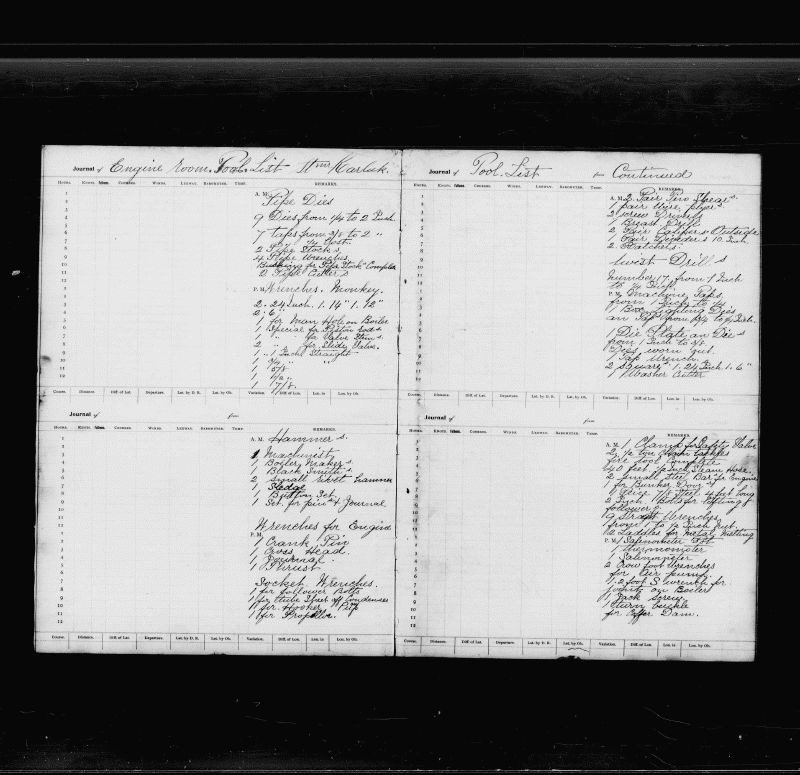 Journal of Engine room. Tool List Stmr Karluk.
HOURS. KNOTS. Fathoms. COURSES. WINDS. LEEWAY. BAROMETER. TEMP. REMARKS.
A. M.
Pipe Dies
9 Dies from 1/4 to 2 Inch
7 taps from 3/8 to 2 "
2 Pipe Stocks
4 Pipe Wrenches
Bushing for Pipe Stock Complete
2 Pipe Cutters
P. M. Wrenches. Monkey.
2. 24 inch. 1. 14" 1. 12"
2. 6"
1 for Man Hole on Boiler
1 Special for Piston rods
1 " for Valve Stems
2 " for Slide Valve.
1 " 1 Inch Straight
1 3/4 " "
1 5/8
1 1/2 "
1 7/8.
Course. Distance. Diff of Lat. Departure. Lat. by D. R. Lat. by Ob. Variation. Diff. of Lon. Lon. in Lon. by Ob.
Journal of from
HOURS. KNOTS. Fathoms. COURSES. WINDS. LEEWAY. BAROMETER. TEMP. REMARKS.
A. M. Hammers.
1 Machinest
1 Boiler Makers
1 Black Smiths
2 small rivet hammer
1 Sledge
1 Button Set
1 Set for pins & Journal
Wrenches for Engine
P. M.
1 Crank Pin
1 Cross Head.
1 Journal
1 Thrust
Socket Wrenches.
1 for follower Bolts
1 for tube Sheet off Condenser
1 for Hooker Pitt
1 for Propellor.
Course. Distance. Diff of Lat. Departure. Lat. by D. R. Lat. by Ob. Variation. Diff. of Lon. Lon. in Lon. by Ob.
Journal of Tool List from Continued
HOURS. KNOTS. Fathoms. COURSES. WINDS. LEEWAY. BAROMETER. TEMP. REMARKS.
A. M. 2 Pair Tin Shears
1 pair Wire Plyers
2 screw Drivers
1 Breast Drill
2 Pair Calipers Outside
1 Pair Deviders 10 Inch
2 Ratchets
Twist Drills
number 17, from 1 Inch
to 1/4 Inch
P. M. Machine Taps
from 1 Inch to 1/4
1 Box Lighting Dies
an Taps from 1/4 to 3/4 Inch.
1 Die Plate an Dies
from 1 Inch to 3/8
Dies worn out
1 Tap Wrench.
2 squares 1. 24 Inch 1. 6"
1 Washer Cutter
Course. Distance. Diff of Lat. Departure. Lat. by D. R. Lat. by Ob. Variation. Diff. of Lon. Lon. in Lon. by Ob.
Journal of
from
HOURS. KNOTS. Fathoms. COURSES. WINDS. LEEWAY. BAROMETER. TEMP. REMARKS.
A. M. 1 Clamp for Safety Valve
2, 1/2 ton chain tackles
one foot
40 feet 1/2 Inch Steam Hose.
2 small Steel Bar for Engine
1 for Bunker Doors
1 7/8 Steel 4 feet long
2 Inch Bolts for lifting
followers
19 Strait Wrenches
from 1 to 1/2 Inch
2 Ladales for Metal Melting
P. M. 1 Salenometer Pot
1 thermometer
1 Salenometer
2 Crow foot Wrenches
for Air pump.
1. 2 foot S wrench for
joints on Boiler
1 Jack screw
1 turn buckle
for Coffer Dam.
Course. Distance. Diff of Lat. Departure. Lat. by D. R. Lat. by Ob. Variation. Diff. of Lon. Lon. in Lon. by Ob.